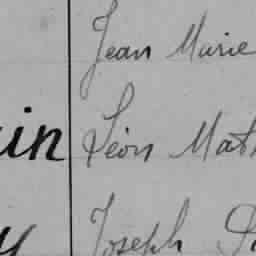 Jean Marie
in Léon Math
y Joseph